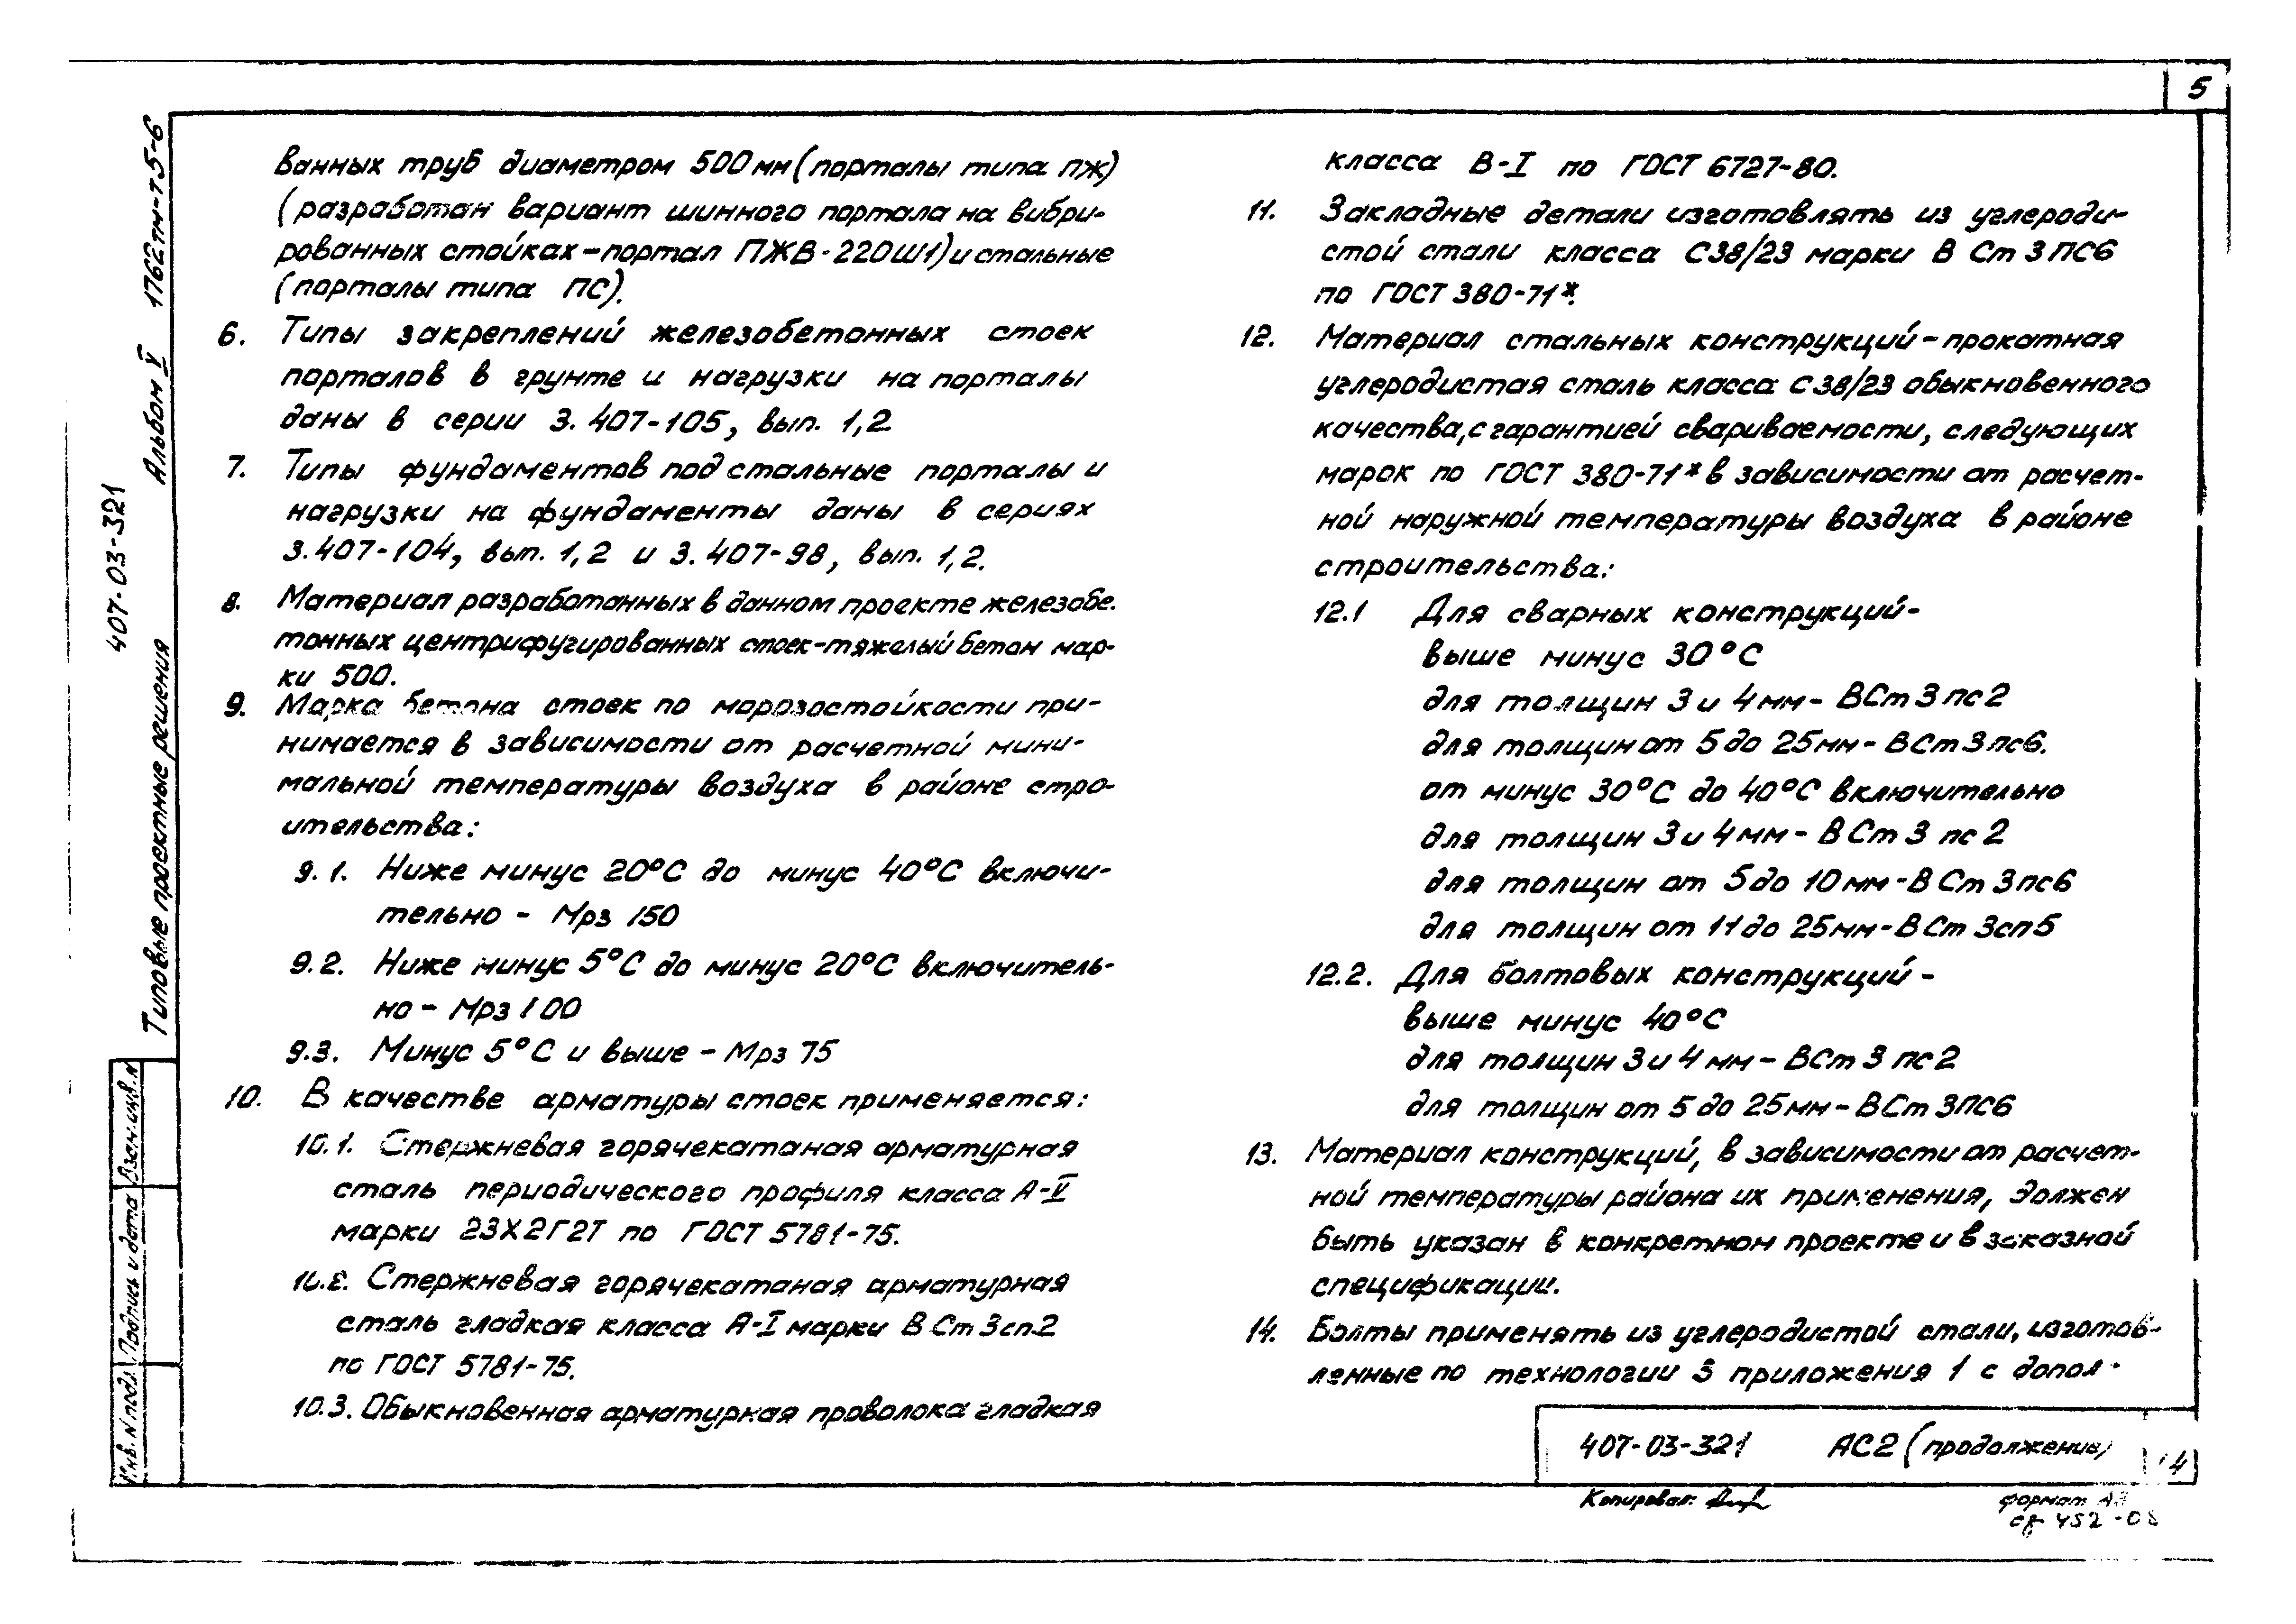 5
ванных труб диаметром 500мм (порталы типа ПЖ)
(разработан вариант шинного портала на вибри-
рованных стойках – портал ПЖВ-220Ш1) и стальные
(порталы типа ПС).
6. Типы закреплений железобетонных стоек
порталов в грунте и нагрузки на порталы
даны в серии 3.407-105, вып. 1,2.
7. Типы фундаментов под стальные порталы и
нагрузки на фундаменты даны в сериях
3.407-104, вып. 1,2 и 3.407-98, вып. 1,2.
8. Материал разработанных в данном проекте железобе-
тонных центрифугированных стоек-тяжелый бетон мар-
ки 500.
9. Марка бетона стоек по морозостойкости при-
нимается в зависимости от расчетной мини-
мальной температуры воздуха в районе стро-
ительства:
9.1. Ниже минус 20°С до минус 40°С включи-
тельно - Мрз 150
9.2. Ниже минус 5°С до минус 20°С включитель-
но - Мрз 100
9.3. Минус 5°С и выше - Мрз 75
10. В качестве арматуры стоек применяется:
10.1. Стержневая горячекатаная арматурная
сталь периодического профиля класса А-V
марки 23Х2Г2Т по ГОСТ 5781-75.
10.2. Стержневая горячекатаная арматурная
сталь гладкая класса А-I марки ВСт3сп2
по ГОСТ 5781-75.
10.3. Обыкновенная арматурная проволока гладкая
класса В-I по ГОСТ 6727-80.
11. Закладные детали изготовлять из углероди-
стой стали класса С38/23 марки ВСт3ПС6
по ГОСТ 380-71*.
12. Материал стальных конструкций - прокатная
углеродистая сталь класса С38/23 обыкновенного
качества, с гарантией свариваемости, следующих
марок по ГОСТ 380-71* в зависимости от расчет-
ной наружной температуры воздуха в районе
строительства:
12.1 Для сварных конструкций-
выше минус 30°С
для толщин 3 и 4 мм - ВСт3пс2
для толщин от 5 до 25мм - ВСт3пс6.
от минус 30°С до 40°С включительно
для толщин 3 и 4 мм - ВСт3пс2
для толщин от 5 до 10 мм - ВСт3пс6
для толщин от 11 до 25мм - ВСт3сп5
12.2. Для болтовых конструкций -
выше минус 40°С
для толщин 3 и 4 мм - ВСт3пс2
для толщин от 5 до 25мм - ВСт3ПС6
13. Материал конструкций, в зависимости от расчет-
ной температуры района их применения, должен
быть указан в конкретном проекте и в заказной
спецификации.
14. Болты применять из углеродистой стали, изготов-
ленные по технологии 3 приложения 1 с допол-
407-03-321 АС2 (продолжение) 4
Копировал:
формат А3
сф 452-08
407-03-321
Типовые проектные решения Альбом V 1762тм-т5-6
Инв. N подл. Подпись и дата Взам. инв. N